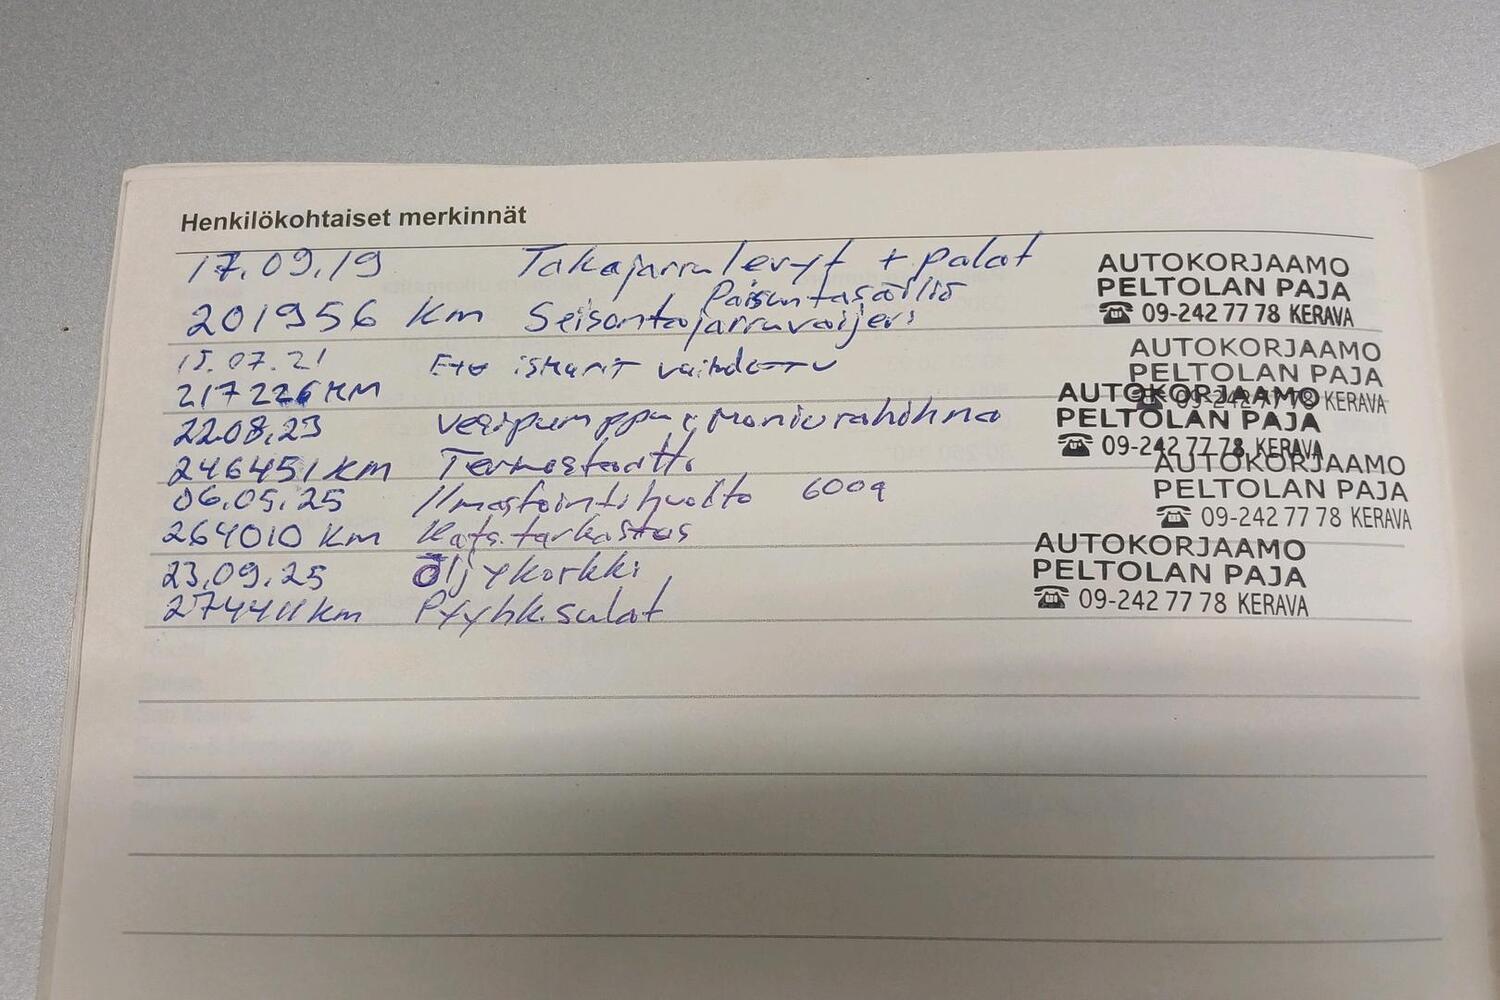 Henkilökohtaiset merkinnät
17.09.19 Takajarrulevyt + palat
Paisuntasäiliö
201956 km Seisontajarruvaijeri
AUTOKORJAAMO
PELTOLAN PAJA
☎ 09-242 77 78 KERAVA
15.07.21 Etu iskarit vaihdettu
217226 KM
AUTOKORJAAMO
PELTOLAN PAJA
☎ 09-242 77 78 KERAVA
22.08.23 Vesipumppu, moniurahihna
246451 km Termostaatti
AUTOKORJAAMO
PELTOLAN PAJA
☎ 09-242 77 78 KERAVA
06.05.25 Ilmastointihuolto 600g
264010 km Kats.tarkastus
AUTOKORJAAMO
PELTOLAN PAJA
☎ 09-242 77 78 KERAVA
23.09.25 Öljykorkki
274411 km Pyyhk.sulat
AUTOKORJAAMO
PELTOLAN PAJA
☎ 09-242 77 78 KERAVA